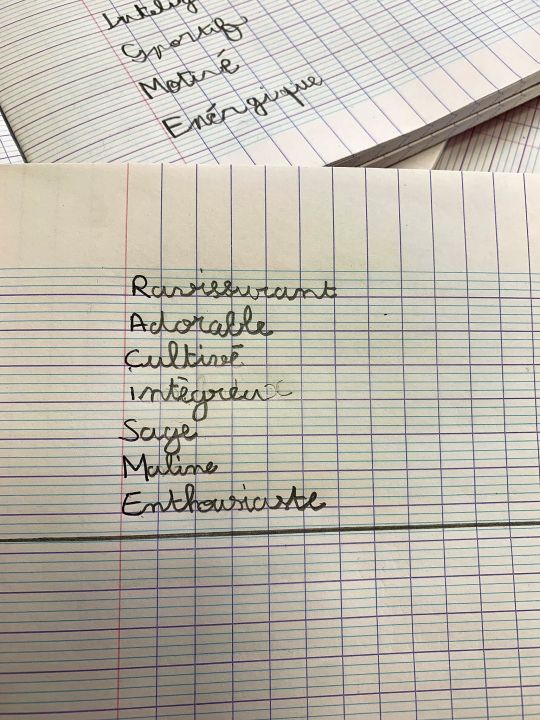 Sportif
Motivé
Enérgique
Ravisseurant
Adorable
Cultivé
intègreux
Sage
Maline
Enthousiaste